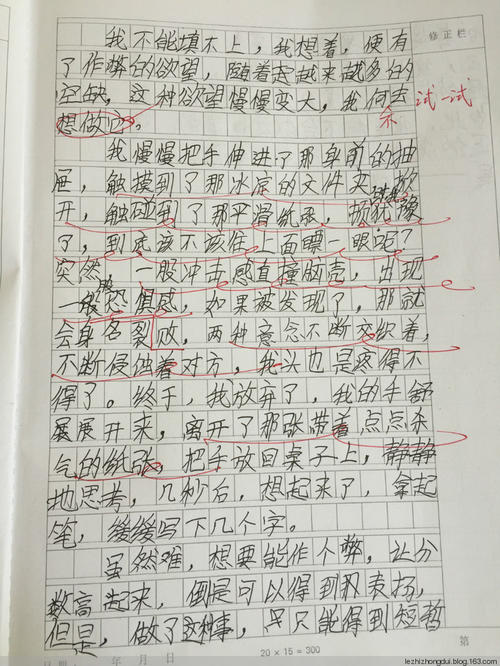 修正栏
我不能填不上，我想着，便有
了作弊的欲望，随着起越来越多的
空缺，这种欲望慢慢变大，我何去
试一试
想做它。
我慢慢把手伸进了那身前的抽
屉，触摸到了那冰凉的文件夹，
开，触碰到了那平滑纸张，犹豫
了，到底该不该往上面瞟一眼呢？
突然，一股冲击感直撞脑壳，出现
一般恐惧感，如果被发现了，那就
会身名裂败，两种意念不断交织着，
不断侵蚀着对方，我头也是疼得不
得了。终于，我放弃了，我的手舒
展展开来，离开了那张带着点点杀
气的纸张，把手放回桌子上，静静
地思考，几秒后，想起来了，拿起
笔，缓缓写下几个字。
虽然难，想要能作个弊，让分
数高起来，倒是可以得到表扬，
但是，做了这种事，只能得到短暂
年 月 日
20 × 15 = 300
第
lezhizhongdui.blog.163.com